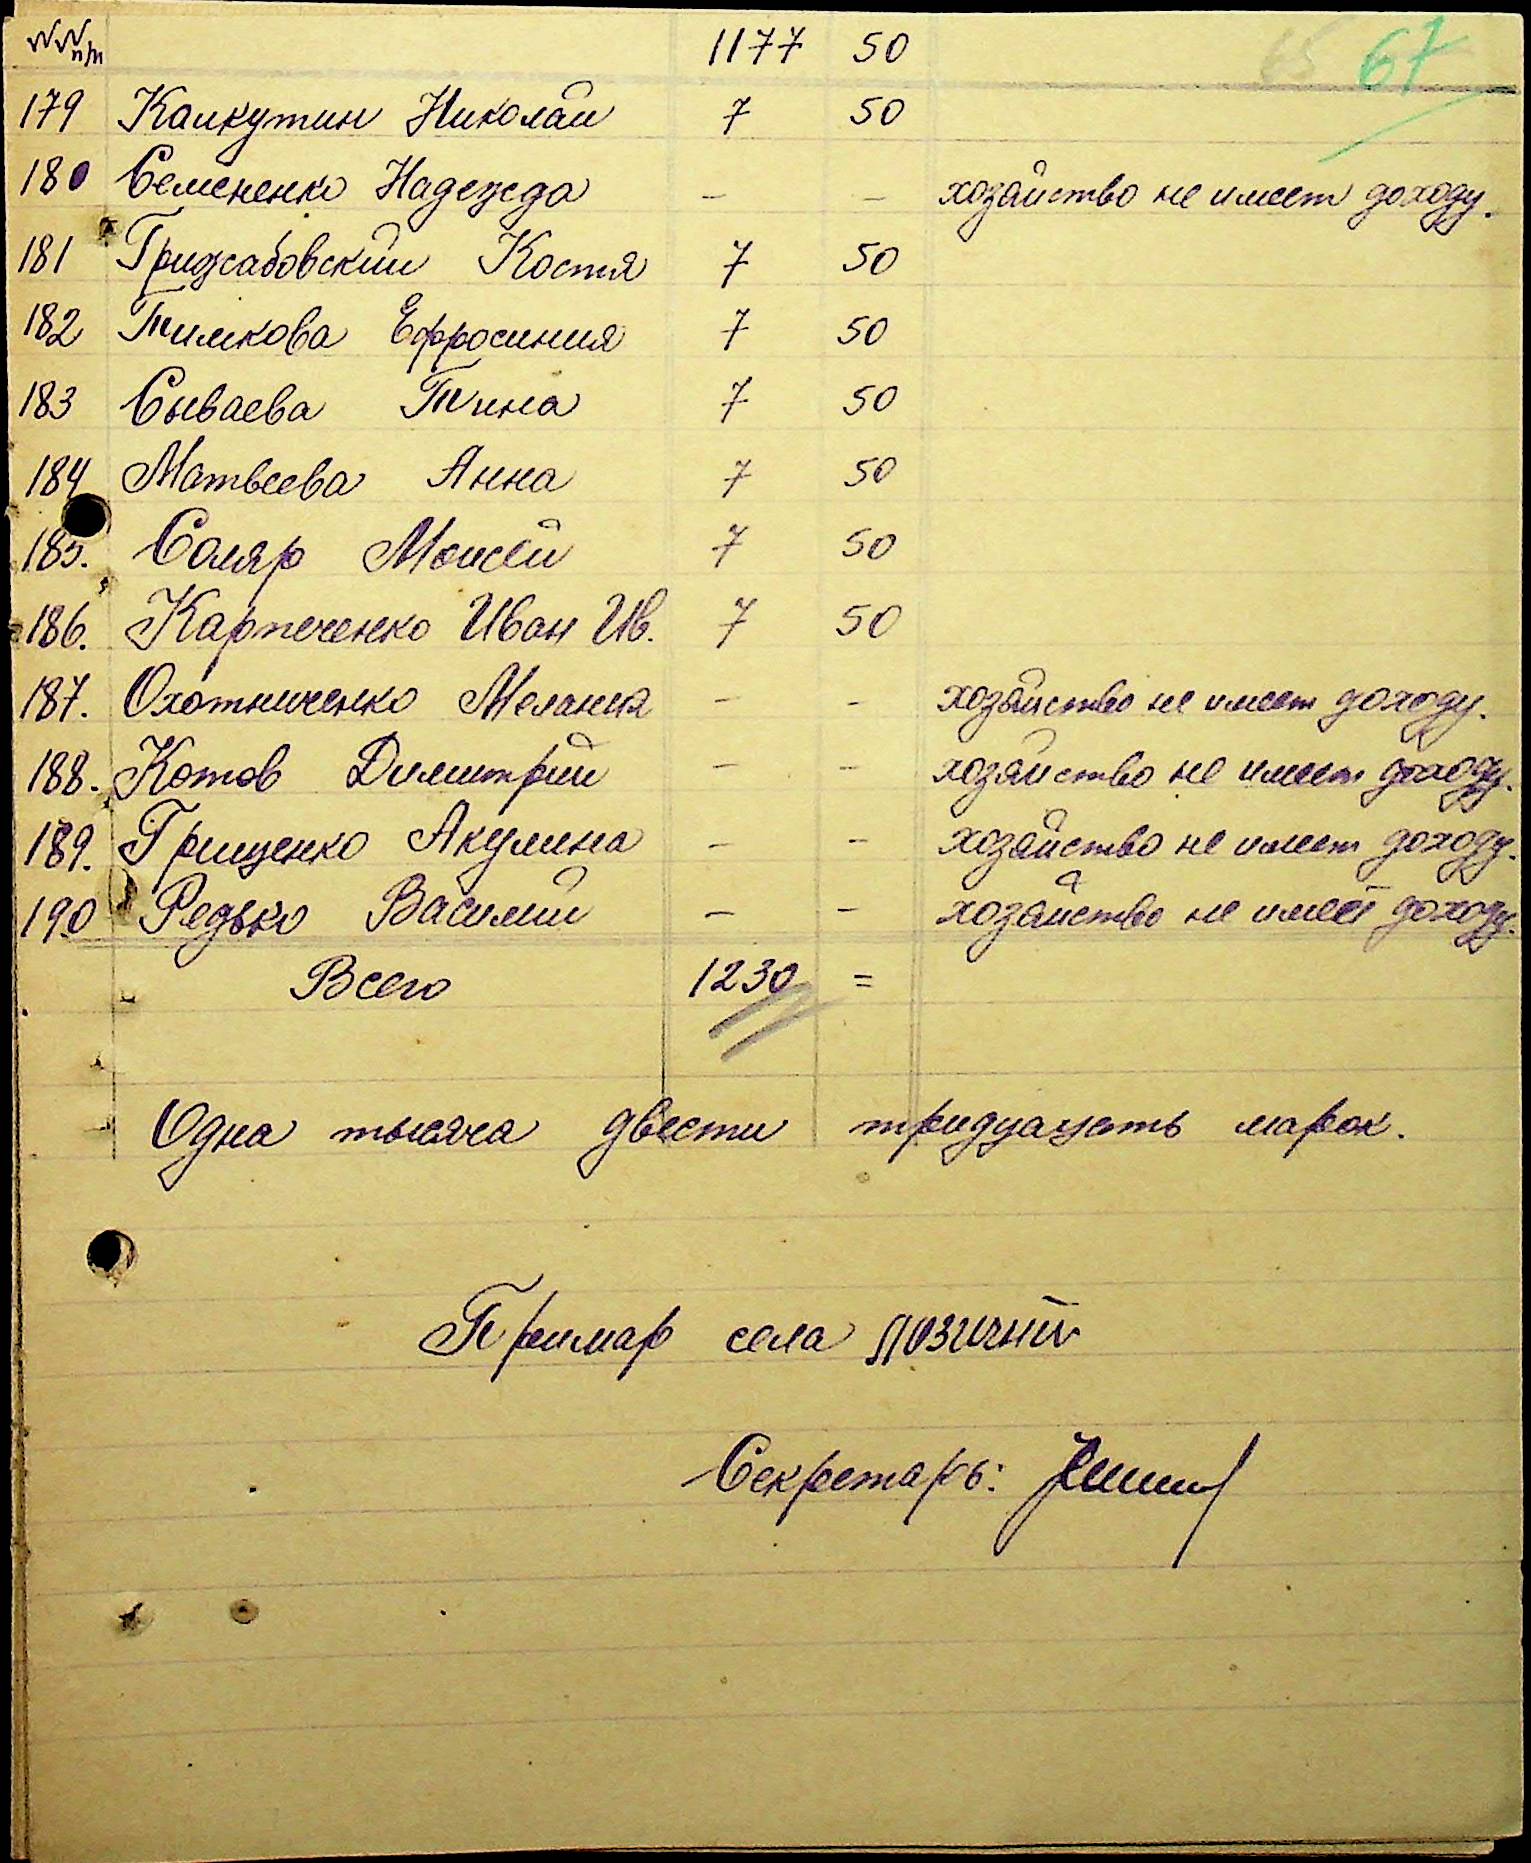 №№ п/п 1177 50 65 67
179 Калкутин Николай 7 50
180 Семененко Надежда - - хозайство не имеет доходу.
181 Грижабовский Костя 7 50
182 Тимкова Ефросиния 7 50
183 Сываева Тина 7 50
184 Матвеева Анна 7 50
185. Соляр Моисей 7 50
186. Карпеченко Иван Ив. 7 50
187. Охотниченко Мелания - - хозайство не имеет доходу.
188. Котов Димитрий - - хозяйство не имеет доходу.
189. Грищенко Акулина - - хозяйство не имеет доходу.
190 Редько Василий - - хозяйство не имеет доходу.
Всего 1230 =
Одна тысяча двести тридуацать марок.
Примар села Лозичний
Секретарь: